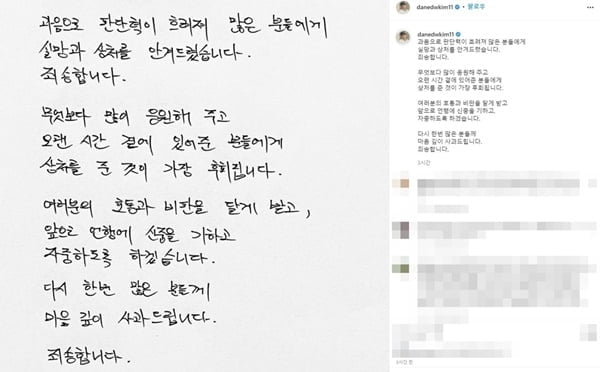 과음으로 판단력이 흐려져 많은 분들에게
실망과 상처를 안겨드렸습니다.
죄송합니다.
무엇보다 많이 응원해 주고
오랜 시간 곁에 있어준 분들에게
상처를 준 것이 가장 후회됩니다.
여러분의 호통과 비판을 달게 받고,
앞으로 언행에 신중을 기하고
자중하도록 하겠습니다.
다시 한번 많은 분들께
마음 깊이 사과드립니다.
죄송합니다.
danedwkim11 • 팔로우
danedwkim11 과음으로 판단력이 흐려져 많은 분들에게
실망과 상처를 안겨드렸습니다.
죄송합니다.
무엇보다 많이 응원해 주고
오랜 시간 곁에 있어준 분들에게
상처를 준 것이 가장 후회됩니다.
여러분의 호통과 비판을 달게 받고
앞으로 언행에 신중을 기하고,
자중하도록 하겠습니다.
다시 한번 많은 분들께
마음 깊이 사과드립니다.
죄송합니다.
5시간